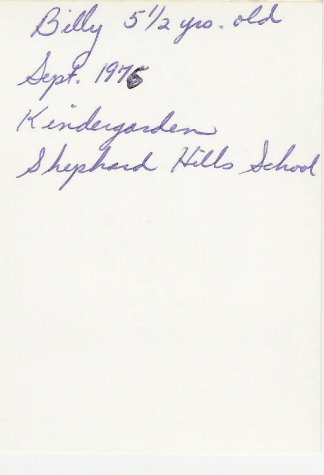 Billy 5 1/2 yrs. old
Sept. 1976
Kindergarden
Shephard Hills School